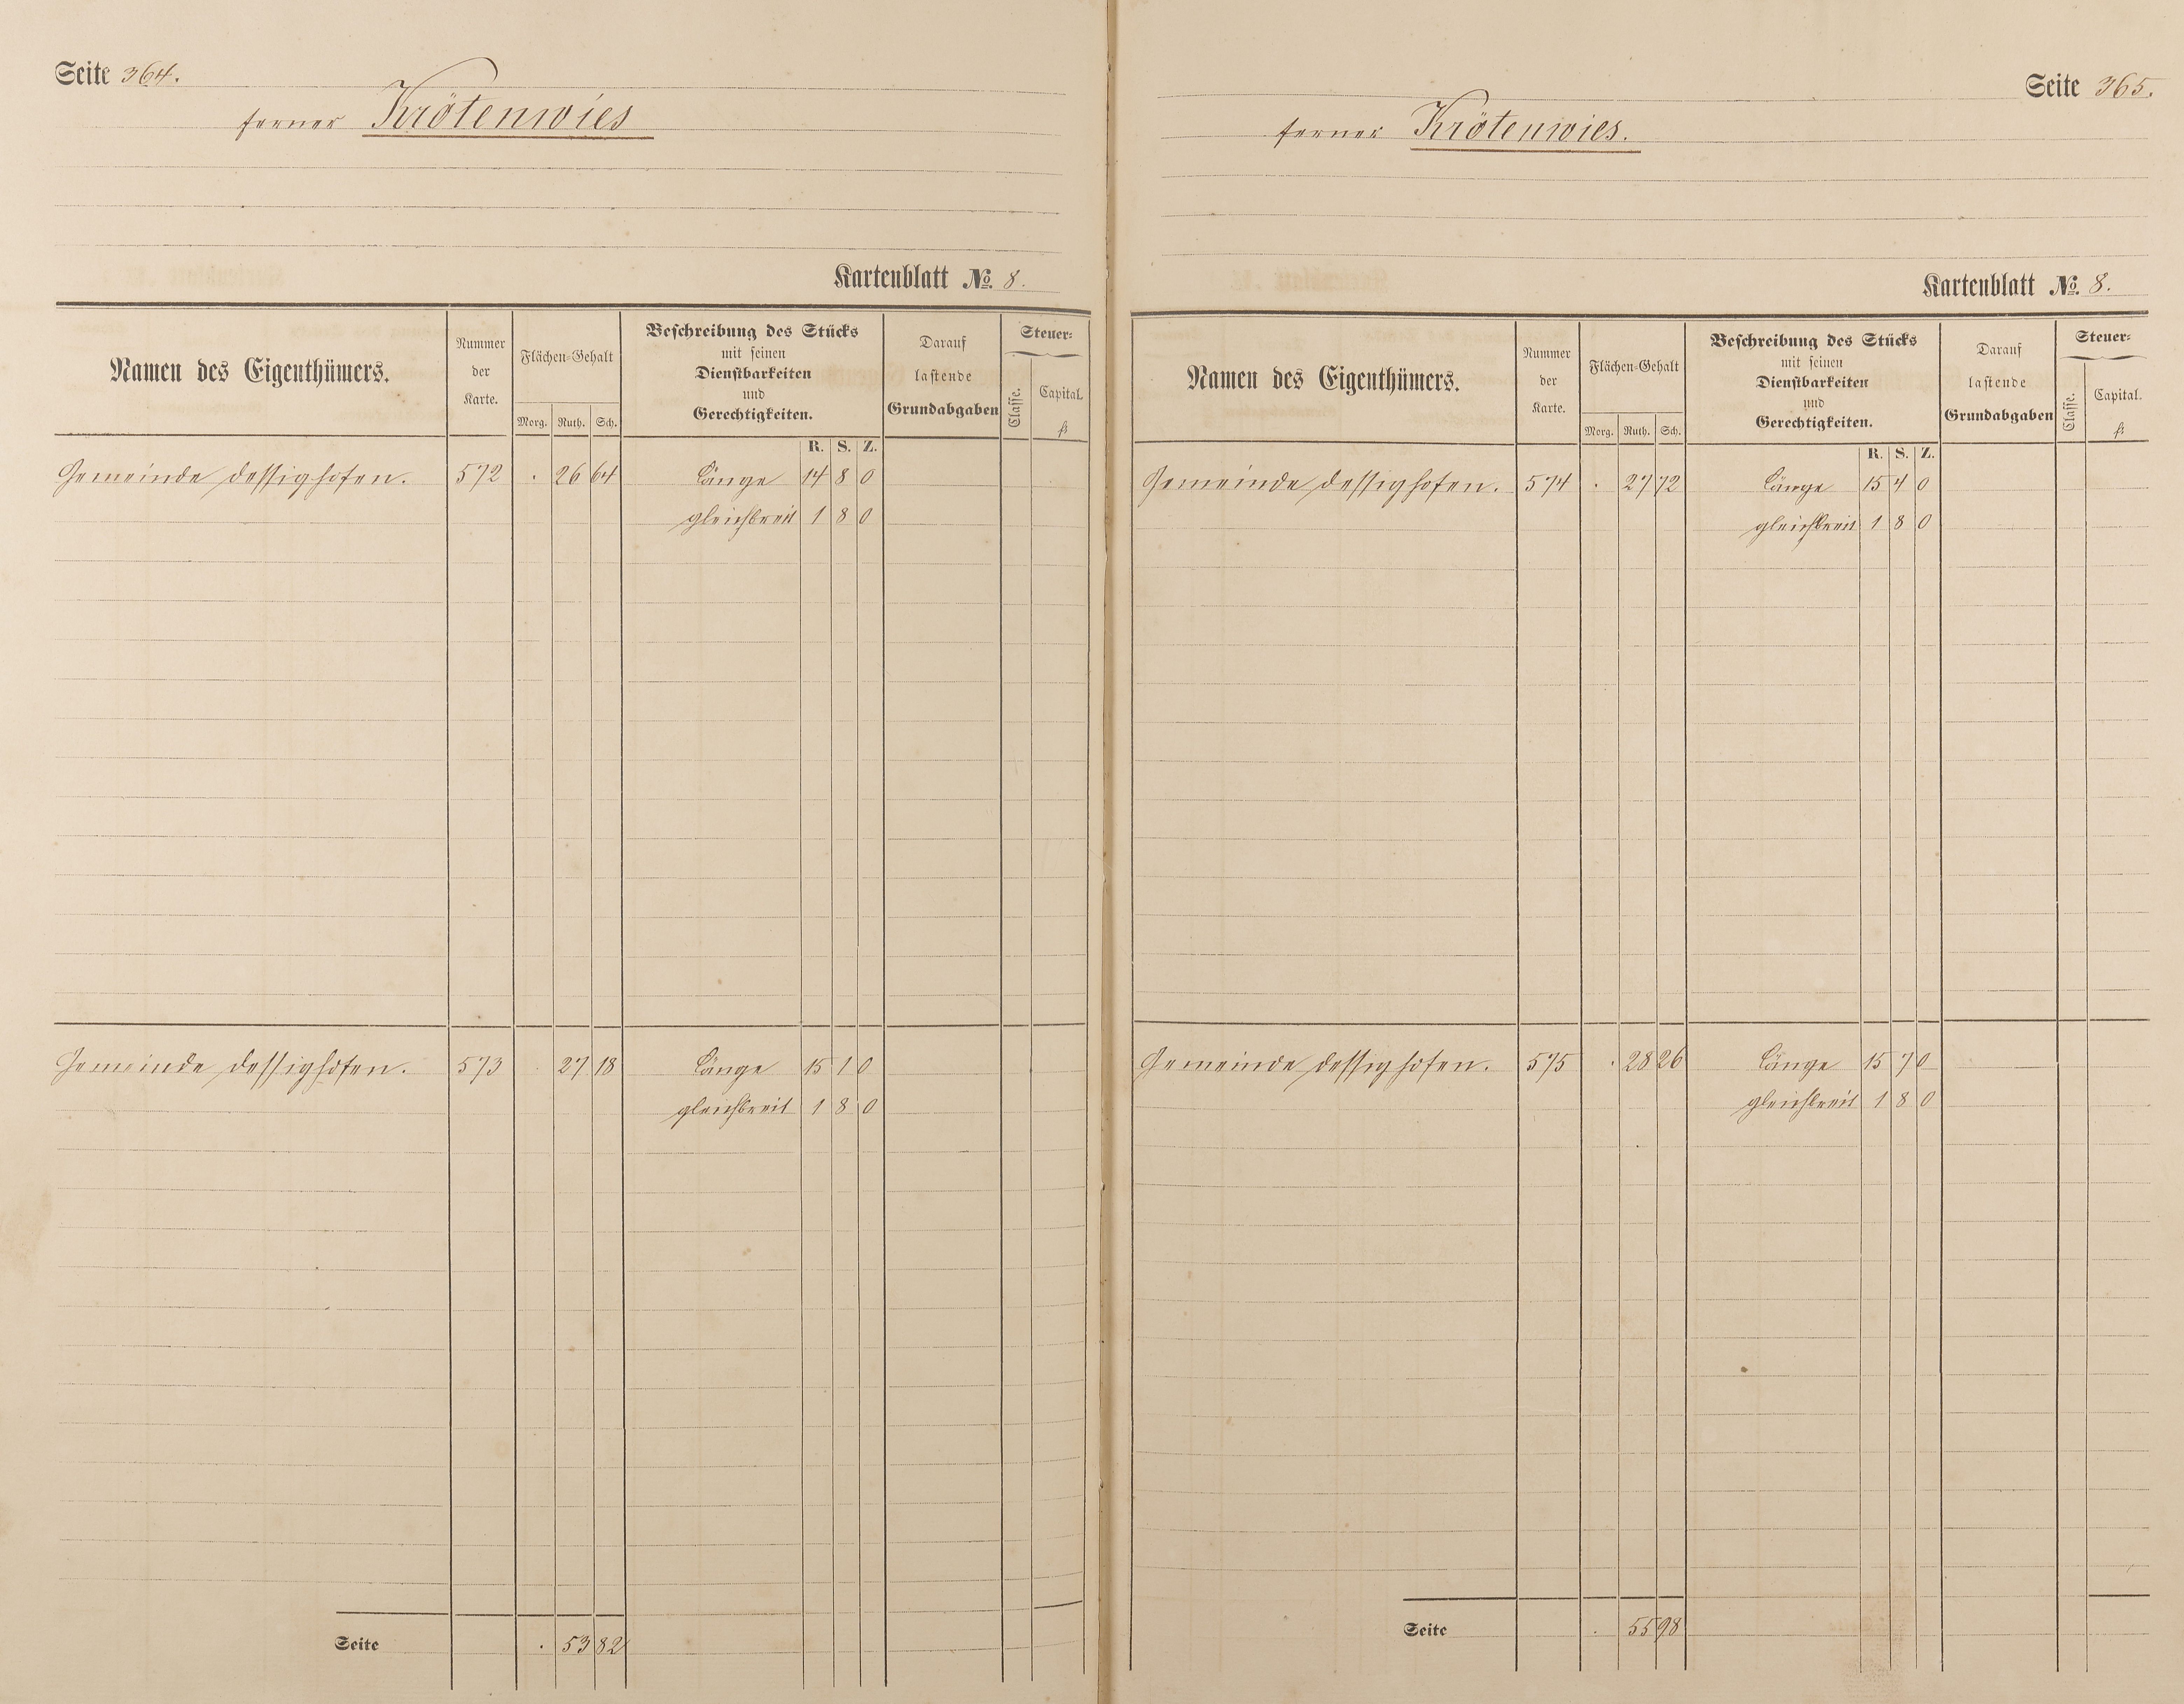 Seite 364.
ferner Krötenwies
Kartenblatt No. 8.
Namen des Eigenthümers.
Nummer der Karte.
Flächen=Gehalt
Morg. Ruth. Sch.
Beschreibung des Stücks
mit seinen
Dienstbarkeiten
und
Gerechtigkeiten.
Darauf
lastende
Grundabgaben
Steuer=
Classe.
Capital.
fl.
R. S. Z.
Gemeinde Dessighofen. 572 . 26 64 Länge 14 8 0
gleichbreit 1 8 0
Gemeinde Dessighofen. 573 . 27 18 Länge 15 1 0
gleichbreit 1 8 0
Seite . 53 82
Seite 365.
ferner Krötenwies.
Kartenblatt No. 8.
Namen des Eigenthümers.
Nummer der Karte.
Flächen=Gehalt
Morg. Ruth. Sch.
Beschreibung des Stücks
mit seinen
Dienstbarkeiten
und
Gerechtigkeiten.
Darauf
lastende
Grundabgaben
Steuer=
Classe.
Capital.
fl.
R. S. Z.
Gemeinde Dessighofen. 574 . 27 72 Länge 15 4 0
gleichbreit 1 8 0
Gemeinde Dessighofen. 575 . 28 26 Länge 15 7 0
gleichbreit 1 8 0
Seite . 55 98